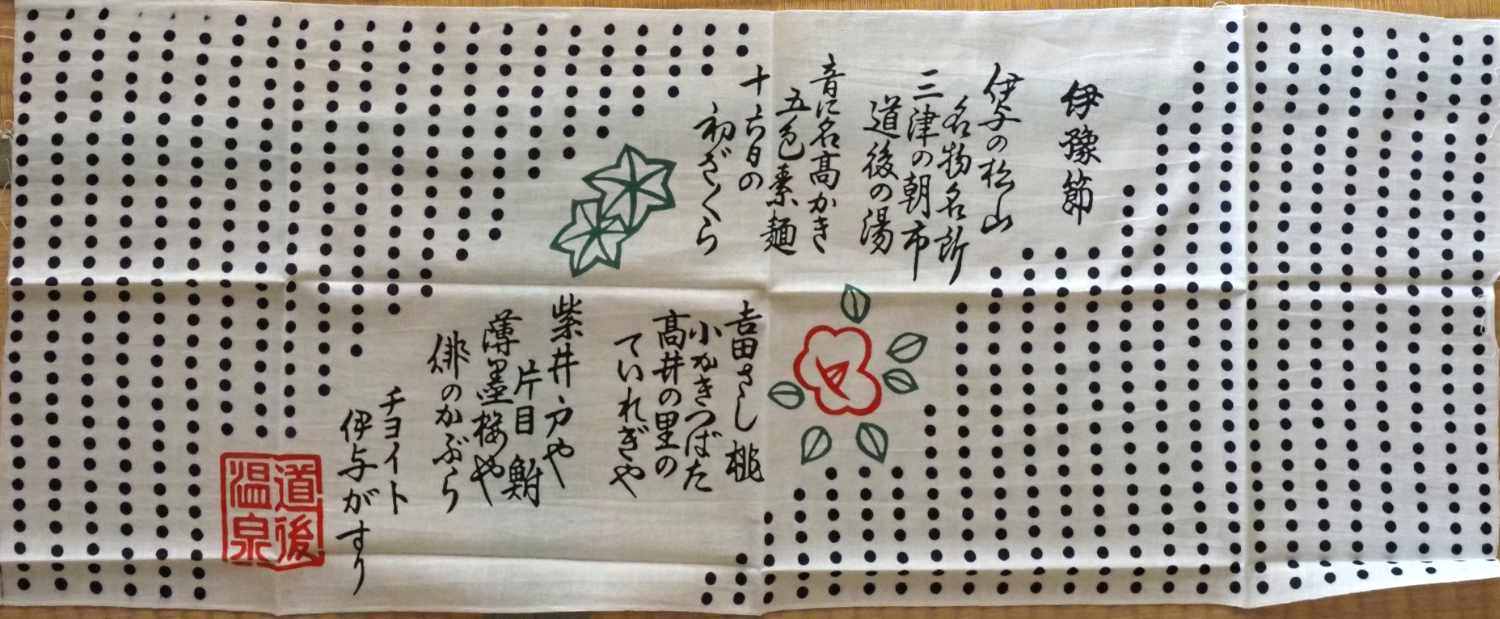 伊豫節
伊予の松山
名物名所
三津の朝市
道後の湯
音に名高かき
五色素麺
十六日の
初ざくら
吉田さし桃
小かきつばた
高井の里の
ていれぎや
紫井戸や
片目鮒
薄墨桜や
緋のかぶら
チヨイト
伊与がすり
道後
温泉